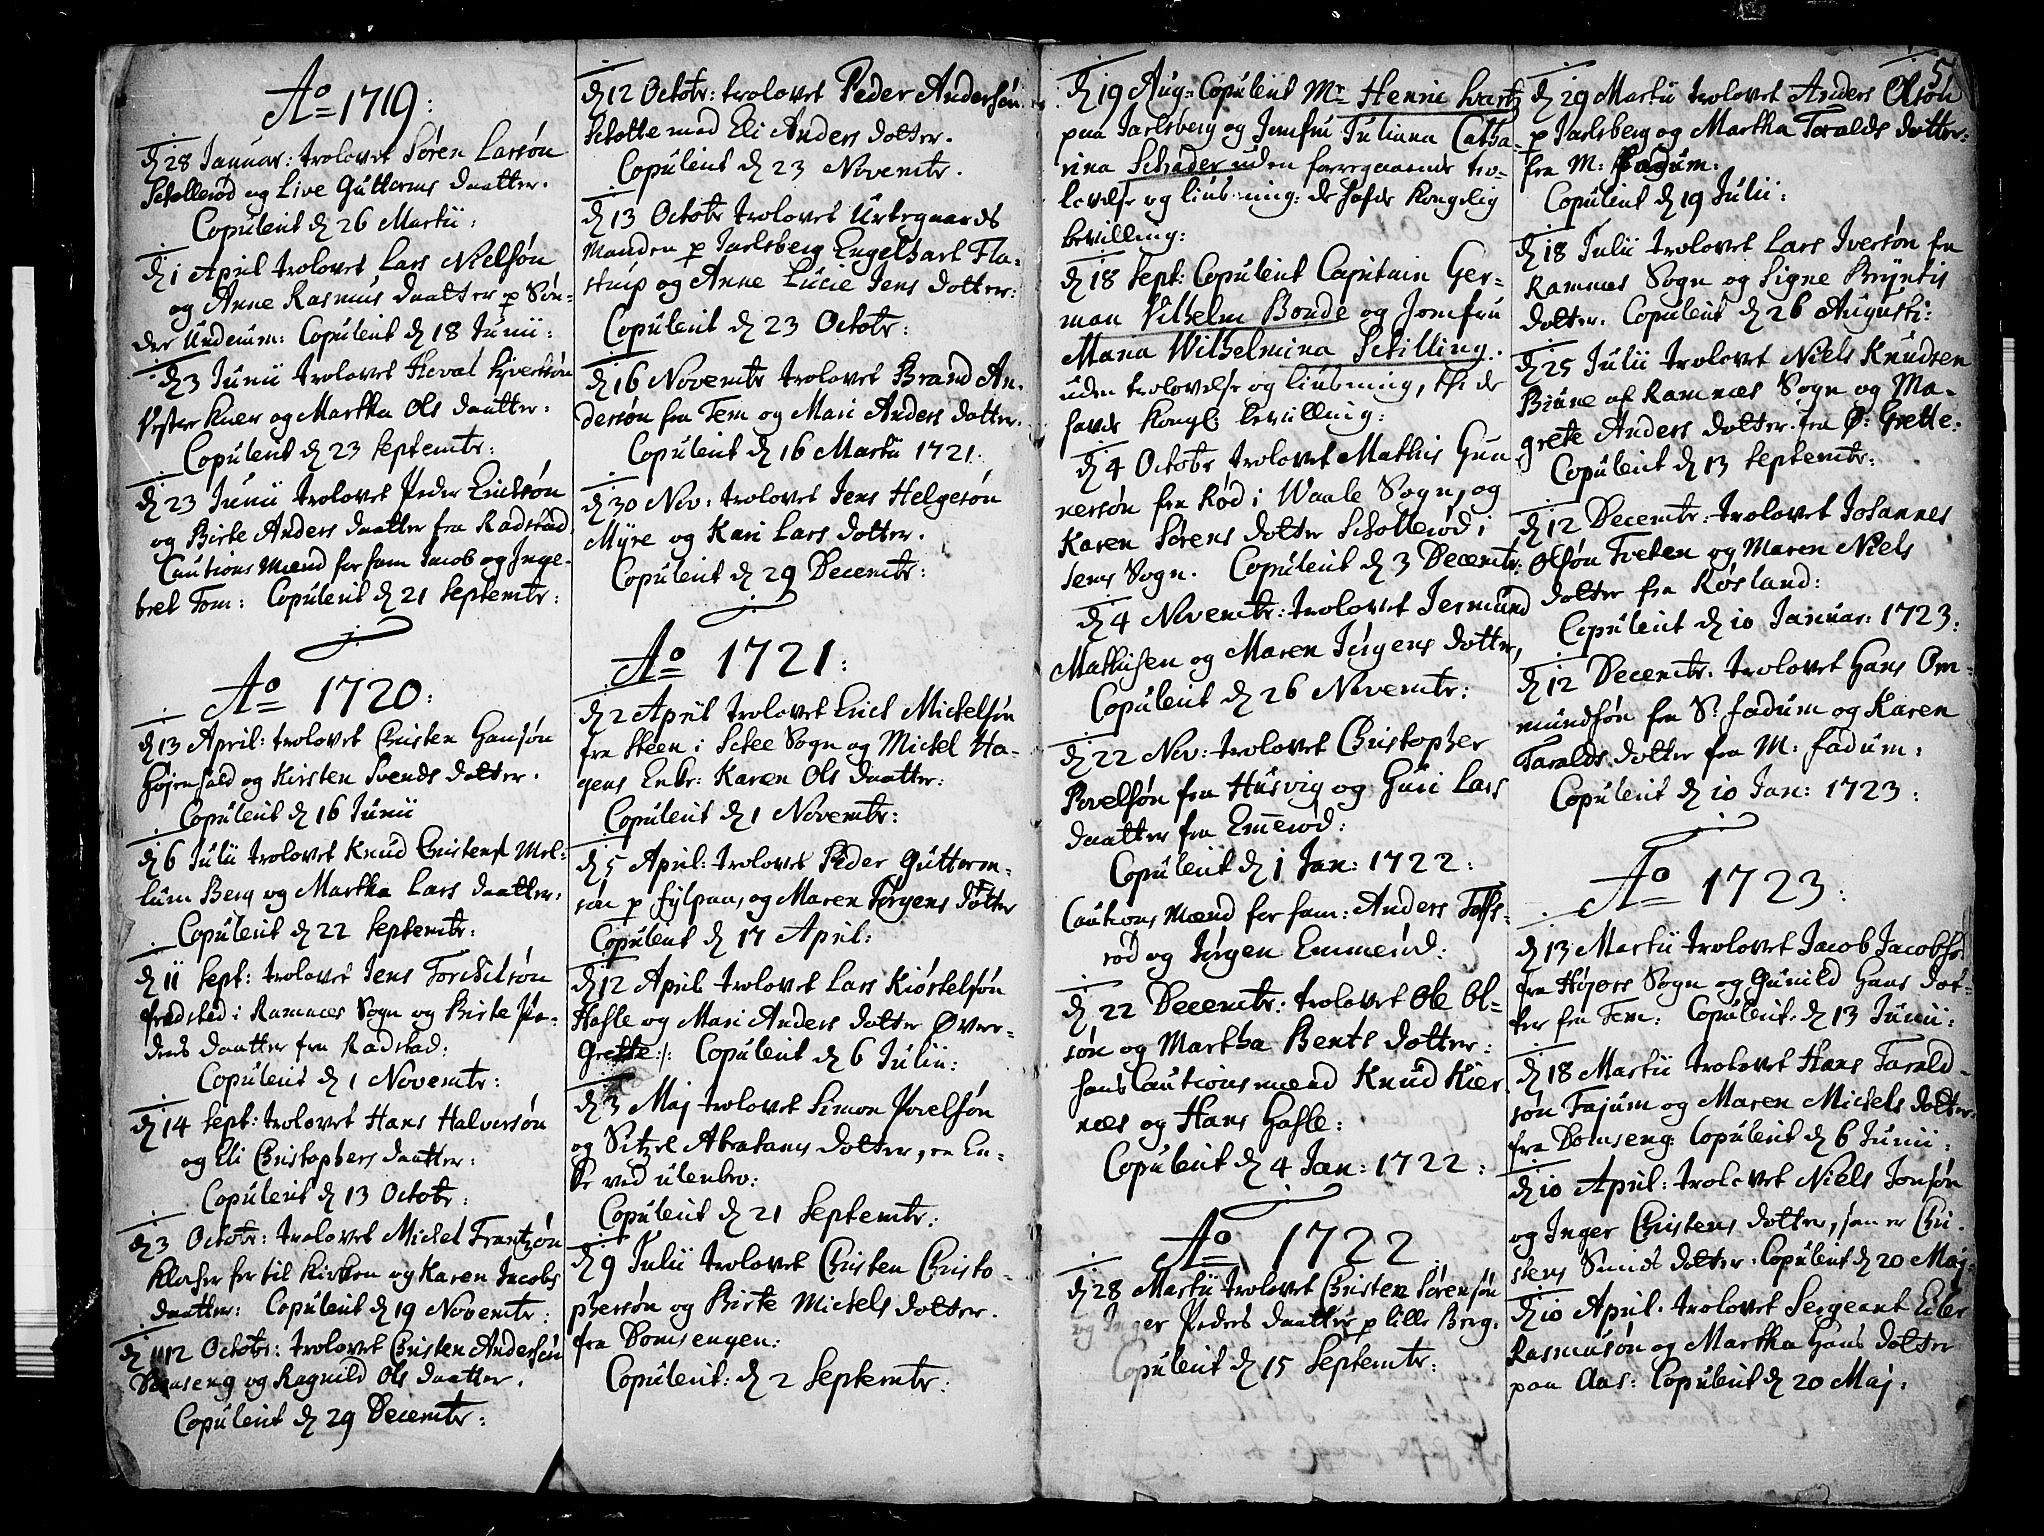 Ao 1719:
d 28 Januar: trolovet Søren Larsøn
Schallerød og Live Guttorms daatter.
Copulerit d 26 Martii:
d 1 April trolovet Lars Nielsøn
og Anne Rasmus daatter p Søn-
der Undrum: Copulerit d 18 Junii:
d 3 Junii trolovet Hoval Sivertsøn
Vester Kiær og Martha Ols daatter:
Copulerit d 23 Septembr:
d 23 Junii trolovet Peder Erichsøn
og Birte Anders daatter fra Radstad
Cautions Mænd for ham Jacob og Inge-
bret Tom: Copulerit d 21 Septembr:
Ao 1720:
d 13 April: trolovet Christen Hansøn
Højensald og Kirsten Svends dotter.
Copulerit d 16 Junii
d 6 Julii trolovet Knud Christens Mel-
lum Berg og Martha Lars daatter:
Copulerit d 22 Septembr:
d 11 Sept: trolovet Jens Torchilsøn
fredsted i Ramnes Sogn og Birte Pe-
ders daatter fra Radstad:
Copulerit d 1 Novembr:
d 14 Sept: trolovet Hans Halversøn
og Eli Christophers daatter:
Copulerit d 13 Octobr:
d 3 Octobr: trolovet Michel Frantzøn
Klocker her til Kirken og Karen Jacobs
daatter: Copulerit d 19 Novembr:
d 12 Octobr: trolovet Christen Andersøn
og Ragnild Ols daatter.
Copulerit d 29 Decembr:
d 12 Octobr: trolovet Peder Andersøn
Schotte med Eli Anders dotter.
Copulerit d 23 Novembr.
d 13 Octobr trolovet Urtegaards
Manden p Jarlsberg Engelhart Fla-
strup og Anne Lucie Jens dotter:
Copulerit d 23 Octobr:
d 16 Novembr trolovet Brand An-
dersøn fra Tem og Mari Anders dotter.
Copulerit d 16 Martii 1721.
d 30 Nov: trolovet Jens Helgesøn
Myre og Kari Lars dotter.
Copulerit d 29 Decembr:
Ao 1721:
d 2 April trolovet Erich Michelsøn
fra Steen i Schee Sogn og Michel Ha-
gens Enke: Karen Ols daatter:
Copulerit d 1 Novembr:
d 5 April: trolovet Peder Guttorm-
søn p Fylpaa, og Maren Jørgens dotter
Copulerit d 17 April:
d 12 April trolovet Lars Kiøstelsøn
Hasle og Mari Anders dotter Øver-
Grette :/: Copulerit d 6 Julii:
d 3 Maj trolovet Simon Povelsøn
og Sitzel Abrahams dotter, en En-
ke ved ulenbro:
Copulerit d 21 Septembr:
d 9 Julii trolovet Christen Christo-
phersøn og Birte Michels dotter.
fra Domsengen:
Copulerit: d 2 Septembr:
d 19 Aug: Copulerit Mr Henric Svartz
paa Jarlsberg og Jomfru Juliana Catha-
rina Schrader uden forregaaende tro-
lovelse og liusning: de hafde Kongelig
bevilling:
d 18 Sept: Copulerit Capitain Ger-
man Vilhelm Bonde og Jomfru
Maria Wilhelmina Schilling.
uden trolovelse og liusning, thi de
hafde Kongl: bevilling:
d 4 Octobr trolovet Mathis Gun
nersøn fra Rød i Waale Sogn, og
Karen Sørens dotter Schollerød i
Sems Sogn. Copulerit d 3 Decembr:
d 4 Novembr: trolovet Jermund
Mathisen og Maren Jørgens dotter,
Copulerit d 26 Novembr:
d 22 Nov: trolovet Christopher
Povelsøn fra Husvig og Guri Lars
daatter fra Emmerød:
Copulerit d 1 Jan: 1722:
Cautions Mænd for ham: Anders Tofs-
rød og Jørgen Emmerød:
d 22 Decembr: trolovet Ole Ol-
søn og Martha Bents dotter:
hans Cautions mænd Knud Kier
næs og Hans Hasle:
Copulerit d 4 Jan: 1722:
Ao 1722
d 28 Martii trolovet Christen Sørensøn
og Inger Peders daatter p lille Berg.
Copulerit d 15 Septembr:
5
d 29 Martii trolovet Anders Olsøn
p Jarlsberg og Martha Taralds dotter:
fra M: Fadum:
Copulerit d 19 Julii:
d 18 Julii trolovet Lars Iversøn fra
Ramnes Sogn og Signe Bryntis
dotter. Copulerit d 26 Augusti:
d 25 Julii trolovet Niels Knudsen
Brune af Ramnes Sogn og Ma-
grete Anders dotter fra Ø: Grette:
Copulerit d 13 Septembr:
d 12 Decembr: trolovet Johannes
Olsøn Tveten og Maren Niels
dotter fra Røsland:
Copulerit d 10 Januar: 1723:
d 12 Decembr. trolovet Hans Om-
mundsøn fra S: fadum og Karen
Taralds dotter fra M: fadum:
Copulerit d 10 Jan: 1723:
Ao 1723:
d 13 Martii trolovet Jacob Jacobsøn
fra Højers Sogn og Gunild Hans dot-
ter fra Tem: Copulerit d 13 Junii:
d 18 Martii trolovet Hans Tarald-
søn Fajum og Maren Michels dotter:
fra Domseng: Copulerit d 6 Junii:
d 10 April: trolovet Niels Jonsøn
og Inger Christens dotter, som er Chri-
stens Smids dotter. Copulerit d 20 Maj:
d 10 April. trolovet Sergeant Eiler
Rasmusøn og Martha Hans dotter
paa Aas: Copulerit d 20 Maj: